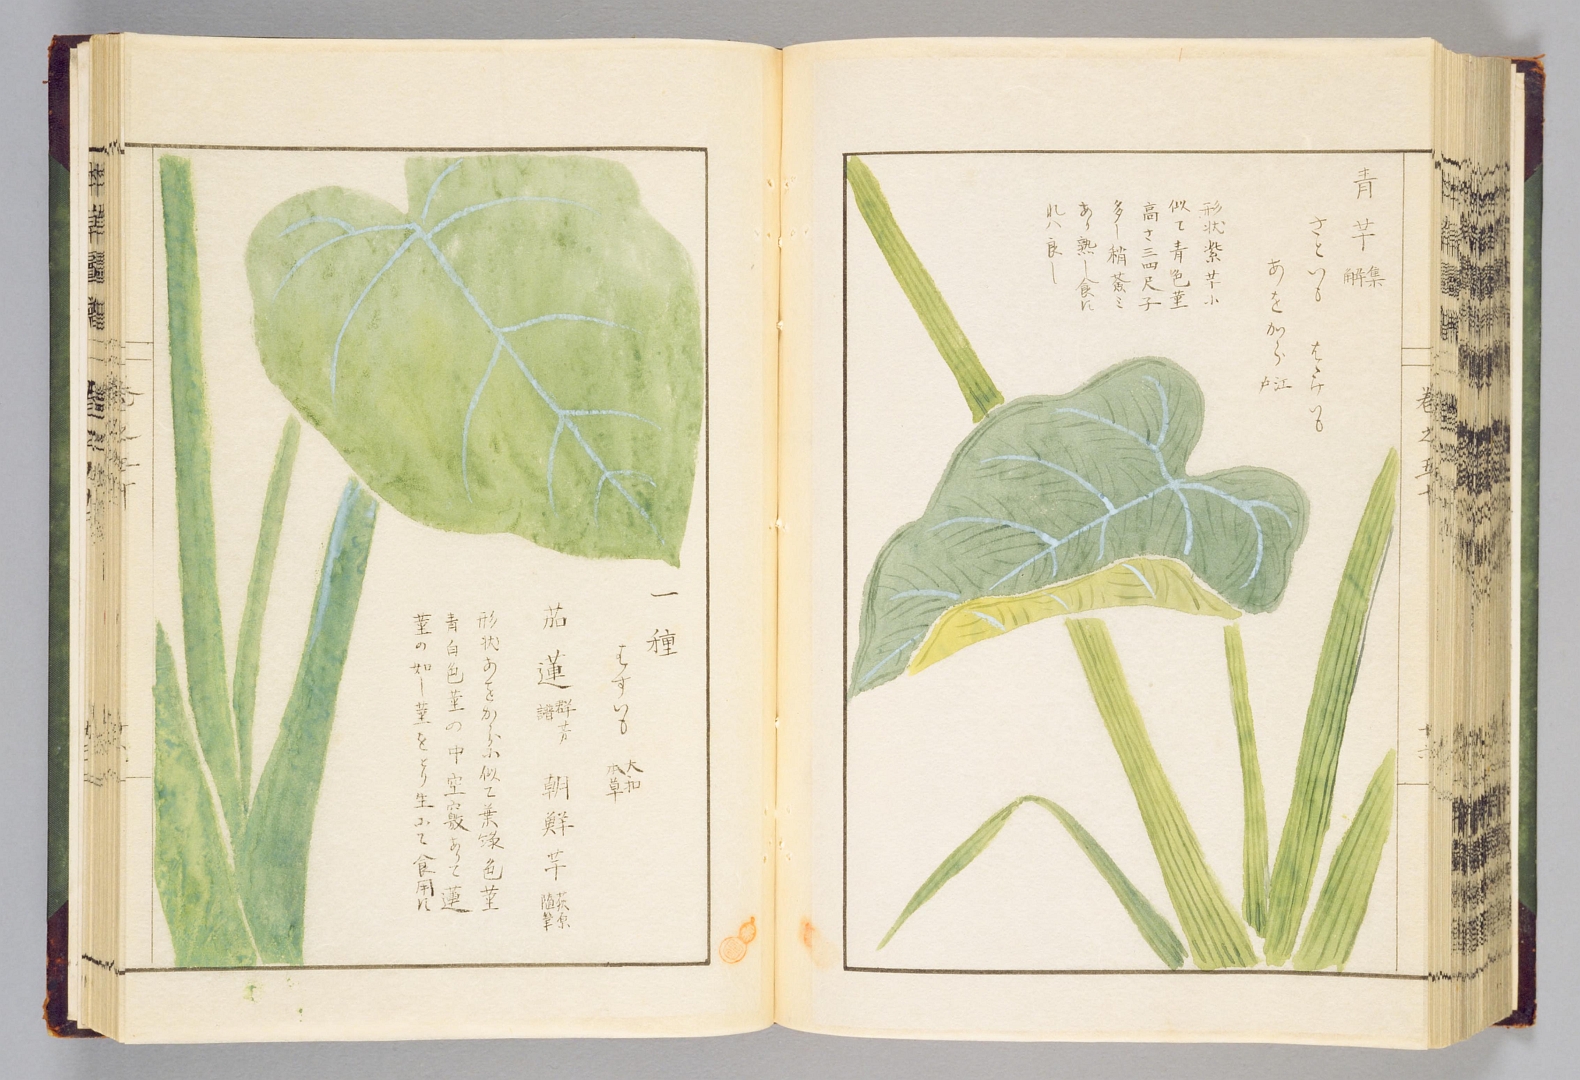 青芋 集解
さといも はたけいも
あをから 江戸
形状紫芋小
似て青色莖
高さ三四尺子
多し稍薟ミ
あり熟し食に
れハ良し
一種
はすいも 大和本草
茄蓮 群芳譜 朝鮮芋 荻原随筆
形状あをから小似て葉緑色莖
青白色莖の中空竅ありて蓮
莖の如し莖をとり生ふて食用に